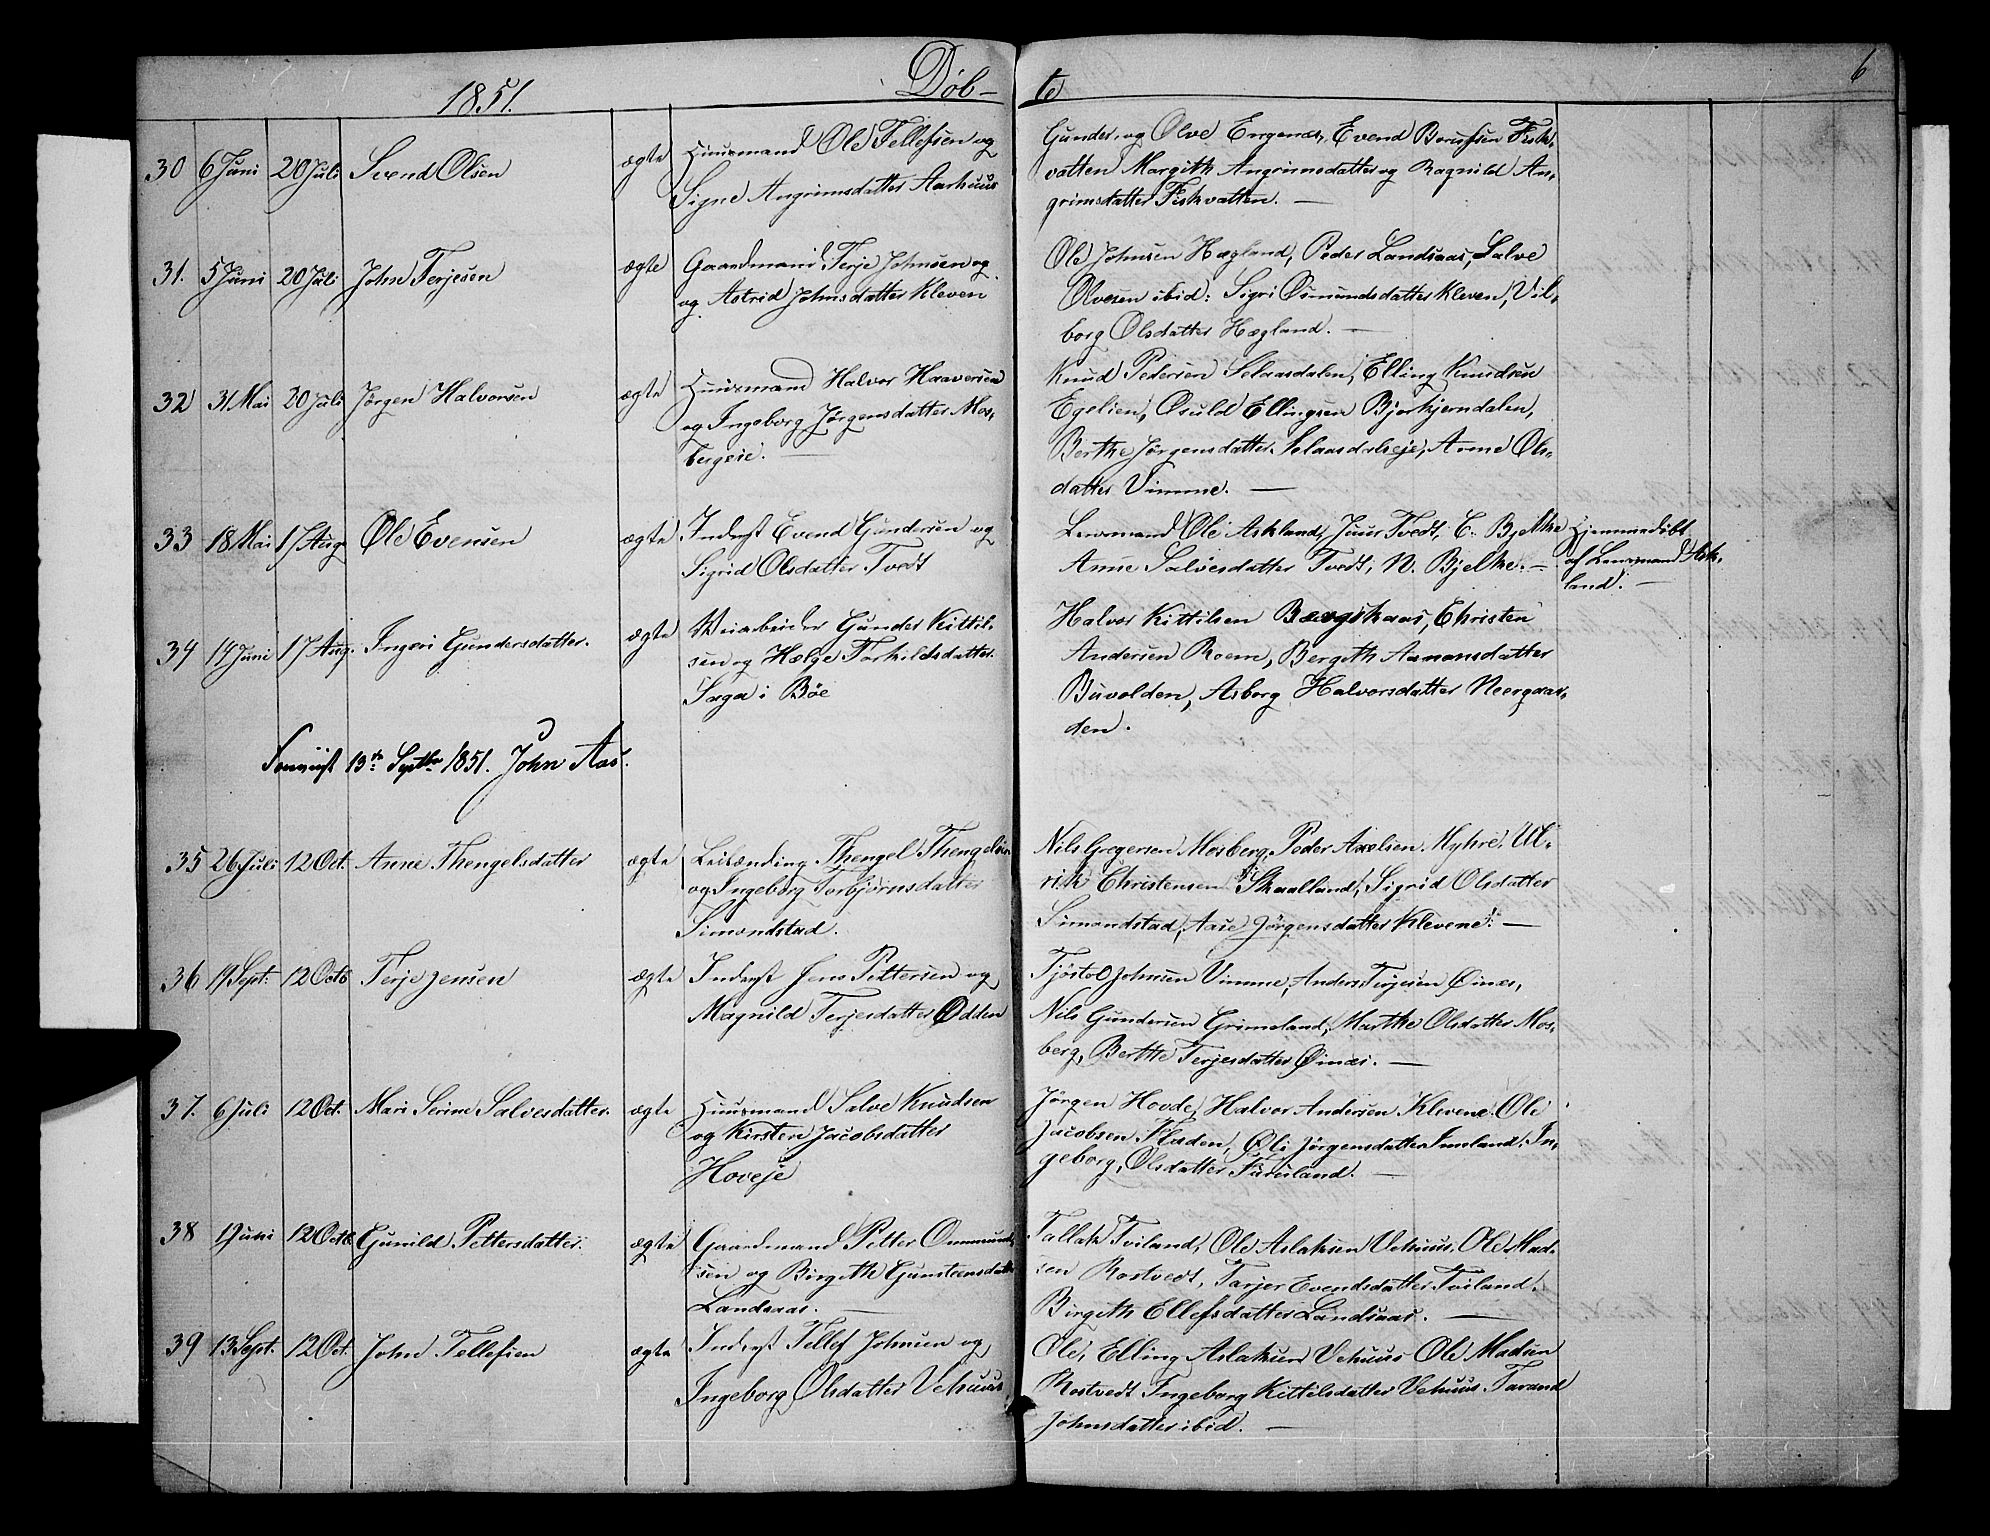 1851. Døb- te 6
30 6 Juni 20 Juli Svend Olsen ægte Huusmand Ole Tellefsen og
Signe Angrimsdatter Aarhuus
Gunder og Olve Engenæs, Evend Fisk-
vatten Margith Angrimsdatter og Ragnild An-
grimsdatter Fiskvatten. —
31. 5 Juni 20 Juli John Terjesen ægte Gaardmand Terje Johnsen og
og Astrid Johnsdatter Kleven
Ole Johnsen Hægland, Peder Landsaas, Salve
Olvesen ibid: Sigri Osmundsdatter Kleven, Vil-
borg Olsdatter Hægland. —
32 31 Mai 20 Juli Jørgen Halvorsen ægte Huusmand Halvor Haaversen
og Ingeborg Jørgensdatter Mos-
bergeie. —
Knud Pedersen Selaasdalen, Elling Knudsen
Egelien, Osuld Ellingsen Bjorkjerndalen,
Berthe Jørgensdatter Selaasdalseje, Anne Ols-
datter Vimme. —
33 18 Mai 17 Aug Ole Evensen ægte Inderst Evend Gundersen og
Sigrid Olsdatter Tvedt
Lensmand Ole Askland, Juur Tvedt, E. Bjelke
Anne Salvesdatter Tvedt, N. Bjelke. —
Hjemmedøbt
af Lensmand Ask-
land. —
34 14 Juni 17 Aug. Ingeri Gundersdatter. ægte Veiarbeider Gunder Kittil-
sen og Hælge Torkildsdatter
Saga i Bøe
Halvor Kittilsen Bergskaas, Christen
Andersen Roem, Bergith Aamonsdatter
Buvolden, Asborg Halvorsdatter Neergaar-
den.
13de Septbr 1851. John Aas.
35 26 Juli 12 Oct. Anne Thengelsdatter ægte Leilænding Thengel Thengelsen
og Ingeborg Torbjørnsdatter
Simondstad.
Nils Gregersen Mosberg, Peder Axelsen Myhre, Ul-
rik Christensen Skaalland, Sigrid Olsdatter
Simondstad, Aase Jørgensdatter Klevene. —
36 19 Sept. 12 Octb Terje Jensen ægte Inderst Jens Pettersen og
Magnild Terjesdatter Odden
Tjøstol Johnsen Vimme, Anders Terjesen Øinæs,
Nils Gundersen Grimeland, Marthe Olsdatter Mos-
berg, Berthe Terjesdatter Øinæs. —
37. 6 Juli 12 Oct. Mari Serine Salvesdatter. ægte Huusmand Salve Knudsen
og Kirsten Jacobsdatter
Hoveje
Jørgen Hovde, Halvor Andersen Klevene. Ole
Jacobsen Fladen, Jørgensdatter In-
geborg, Olsdatter —
38 1 Juni 12 Octb Gunild Pettersdatter. ægte Gaardmand Petter Ommund-
sen og Birgith Gunsteensdatter
Landsaas. —
Tallak Tviland, Ole Aslaksen Vehuus, Ole Mad-
sen Rostvedt, Tarjer Evendsdatter Tviland.
Birgith Ellefsdatter Landsaas. —
39 13 Sept. 12 Oct. John Tellefsen ægte Inderst Tellef Johnsen og
Ingeborg Olsdatter Vehuus
Ole, Elling Aslaksen Vehuus Ole Madsen
Rostvedt Ingeborg Kittilsdatter Vehuus. Tarand
Johnsdatter ibid. —